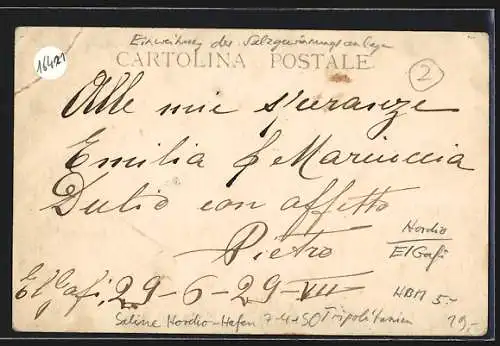 Einweihung der Salzgewinnungsanlage
16421
CARTOLINA POSTALE
2
Alle mie speranze
Emilia e Mariuccia
Dulio con affetto
Pietro
Nordio
El Gafi
El Gafi, 29-6-29-VII
HBM 5.-
Saline Nordio-Hafen Tripolitanien
19,-